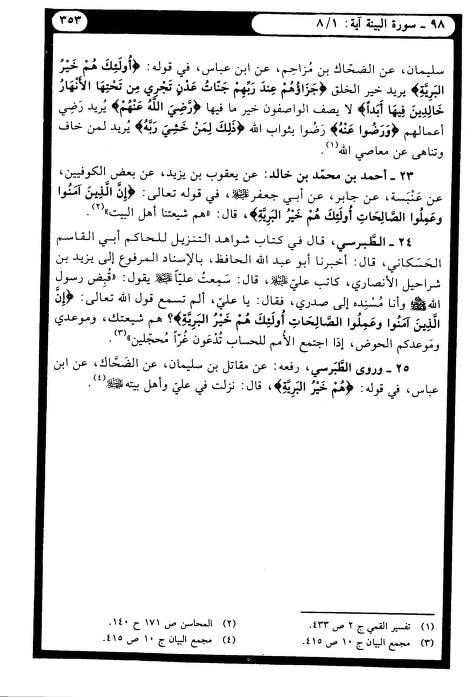 ٩٨ ـ سورة البينة آية: ٨/١
٣٥٣
سليمان، عن الضحّاك بن مُزاحِم، عن ابن عباس، في قوله: ﴿أُولَئِكَ هُمْ خَيْرُ
البَرِيَّةِ﴾ يريد خير الخلق ﴿جَزَاؤُهُمْ عِندَ رَبِّهِمْ جَنَّاتُ عَدْنٍ تَجْرِي مِن تَحْتِهَا الأَنْهَارُ
خَالِدِينَ فِيهَا أَبَداً﴾ لا يصف الواصفون خير ما فيها ﴿رَّضِيَ اللَّهُ عَنْهُمْ﴾ يُريد رَضِي
أعمالهم ﴿وَرَضُوا عَنْهُ﴾ رَضُوا بثواب الله ﴿ذَلِكَ لِمَنْ خَشِيَ رَبَّهُ﴾ يُريد لمن خاف
وتناهى عن معاصي الله(١).
٢٣ ـ أحمد بن محمّد بن خالد: عن يعقوب بن يزيد، عن بعض الكوفيين،
عن عَنْبَسة، عن جابر، عن أبي جعفر، في قوله تعالى: ﴿إِنَّ الَّذِينَ آمَنُوا
وعَمِلُوا الصَّالِحَاتِ أُولَئِكَ هُمْ خَيْرُ البَرِيَّةِ﴾، قال: «هم شيعتنا أهل البيت»(٢).
٢٤ ـ الطَّبرسي، قال في كتاب شواهد التنزيل للحاكم أبي القاسم
الحَسَكاني، قال: أخبرنا أبو عبد الله الحافظ، بالإسناد المرفوع إلى يزيد بن
شراحيل الأنصاري، كاتب عليّ، قال: سَمِعتُ عليّاً يقول: «قُبِض رسول
الله ﷺ وأنا مُسْنِده إلى صدري، فقال: يا عليّ، ألم تسمع قول الله تعالى: ﴿إِنَّ
الَّذِينَ آمَنُوا وعَمِلُوا الصَّالِحَاتِ أُولَئِكَ هُمْ خَيْرُ البَرِيَّةِ﴾؟ هم شيعتك، وموعدي
ومَوعدكم الحوض، إذا اجتمع الأُمم للحساب تُدْعَون غُرّاً مُحجّلين»(٣).
٢٥ ـ وروى الطَّبَرسي، رفعه: عن مقاتل بن سليمان، عن الضَحَّاك، عن ابن
عباس، في قوله: ﴿هُمْ خَيْرُ البَرِيَّةِ﴾، قال: نزلت في عليّ وأهل بيته(٤).
(١) تفسير القمي ج ٢ ص ٤٣٣.
(٢) المحاسن ص ١٧١ ح ١٤٠.
(٣) مجمع البيان ج ١٠ ص ٤١٥.
(٤) مجمع البيان ج ١٠ ص ٤١٥.